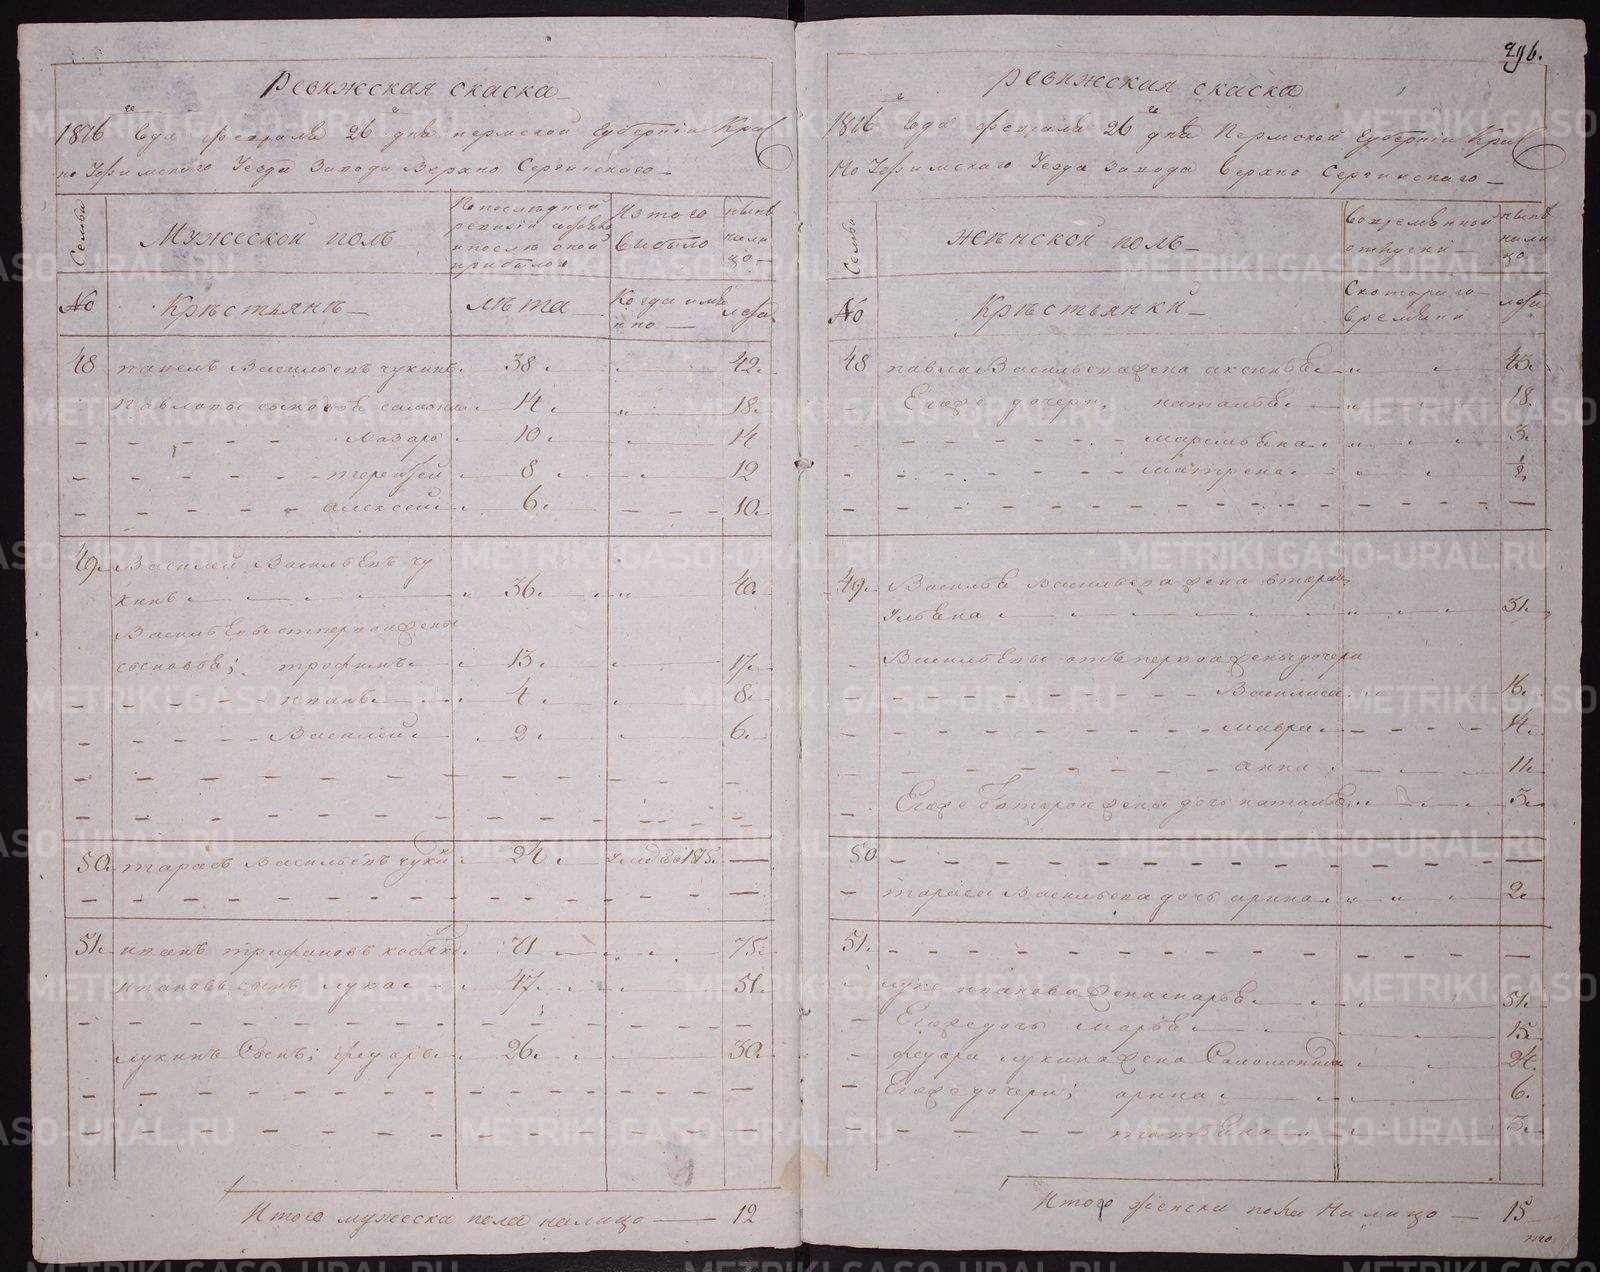 296.
Ревижская скаска
1816 го Года февраля 26 го дня пермской Губернiи Крас
но Уфимскаго Уезда Завода Верхно Сергинскаго
Семьи
Мужеской полъ
По последней
ревизiи состояло
и после оной
прибыло
Изтого
выбыло
ныне
нали
цо
№
Крѣстьянѣ
лѣта
Когда имя
нно
лета
48 павелъ Васильевъ чукинъ 38. 42.
Павловы сыновьѣ самойла 14. 18.
Лазарь 10. 14
терентей 8. 12
алексеи 6. 10.
49. Василей Васильевъ чу
кинъ 36. 40.
Васильевы отпервой жены
сыновья; трофимъ 13. 17.
иванъ 4. 8.
Василей 2. 6.
50. тарасъ Васильевъ чуки 24. Умидъ в 1815.
51. иванъ трифановъ кобяко 71 75.
ивановъ сынъ лука 47. 51.
лукинъ Сынъ; федаръ 26. 30.
Итого мужеска пола налицо 12
Ревижская скаска
1816 го Года февраля 26 го дня Пермской Губернiи Крас
Но Уфимскаго Уезда Завода Верхно Сергинскаго
Семьи
жѣнской полъ
вовремянной
отлуски
ныне
нали
цо
№
Крѣстьянки
Скотораго
времяни
лета
48 павла Васильева жена аксинья 43.
Егоже дочери, наталья 18.
маремьяна 3.
матрена 1/2
49. Василья Васильева жена вторая
Ульяна 31.
Васильевы отъ первой жены дочери
Василиса 16.
мавра 14.
анна 11.
Егоже Отвторои жены дочь наталья 3.
50
тараса Васильева дочь арина 2
51.
луке иванова жена марья 51.
Егоже дочь марья 15
федара лукина жена Саломонида 24.
Егоже дочери; арина 6.
татьяна 3.
Итого женска пола Налицо 15